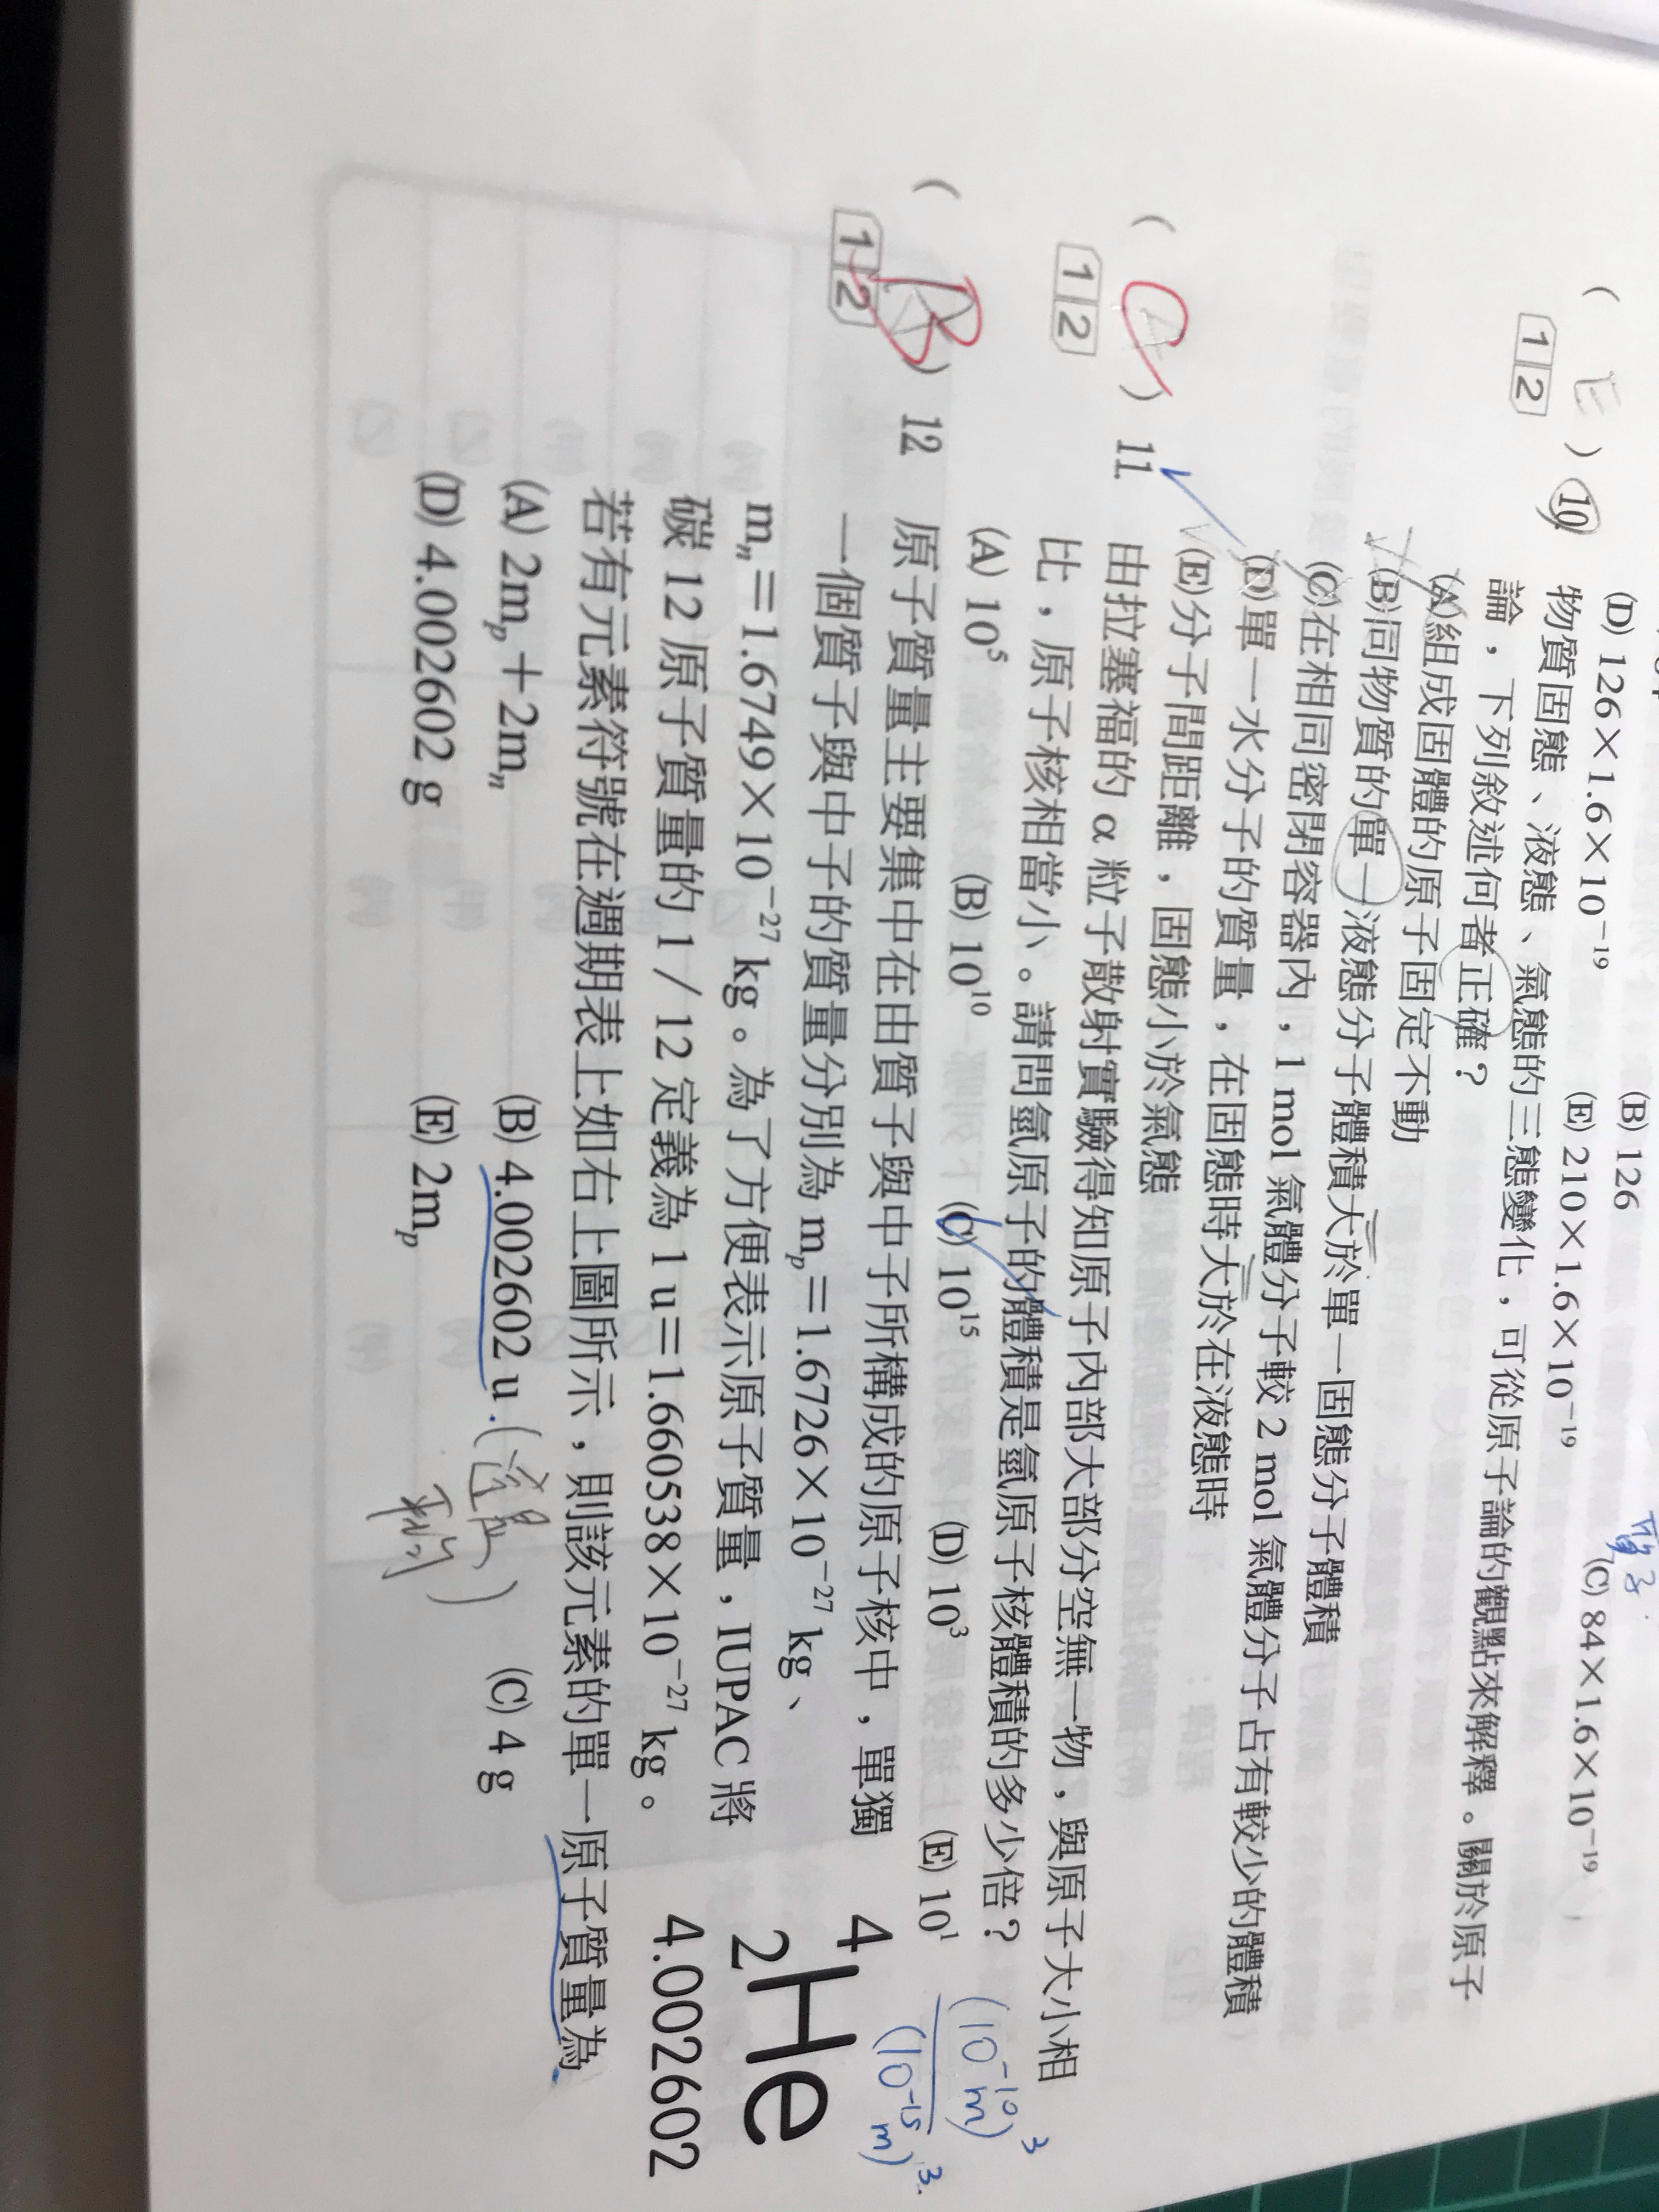 (D) 126×1.6×10⁻¹⁹
(B) 126
(E) 210×1.6×10⁻¹⁹
(C) 84×1.6×10⁻¹⁹
質子
( E ) 10 物質固態、液態、氣態的三態變化，可從原子論的觀點來解釋。關於原子
1 2 論，下列敘述何者正確？
(A)組成固體的原子固定不動
(B)同物質的單一液態分子體積大於單一固態分子體積
(C)在相同密閉容器內，1 mol 氣體分子較 2 mol 氣體分子占有較少的體積
(D)單一水分子的質量，在固態時大於在液態時
(E)分子間距離，固態小於氣態
( C ) 11. 由拉塞福的 α 粒子散射實驗得知原子內部大部分空無一物，與原子大小相
1 2 比，原子核相當小。請問氫原子的體積是氫原子核體積的多少倍？
(A) 10⁵ (B) 10¹⁰ (C) 10¹⁵ (D) 10³ (E) 10¹
(10⁻¹⁰ m)³
(10⁻¹⁵ m)³
( B ) 12 原子質量主要集中在由質子與中子所構成的原子核中，單獨
1 2 一個質子與中子的質量分別為 mₚ＝1.6726×10⁻²⁷ kg、
mₙ＝1.6749×10⁻²⁷ kg。為了方便表示原子質量，IUPAC 將
碳 12 原子質量的 1 / 12 定義為 1 u＝1.660538×10⁻²⁷ kg。
若有元素符號在週期表上如右上圖所示，則該元素的單一原子質量為
⁴₂He
4.002602
(A) 2mₚ＋2mₙ (B) 4.002602 u (C) 4 g
(D) 4.002602 g (E) 2mₚ